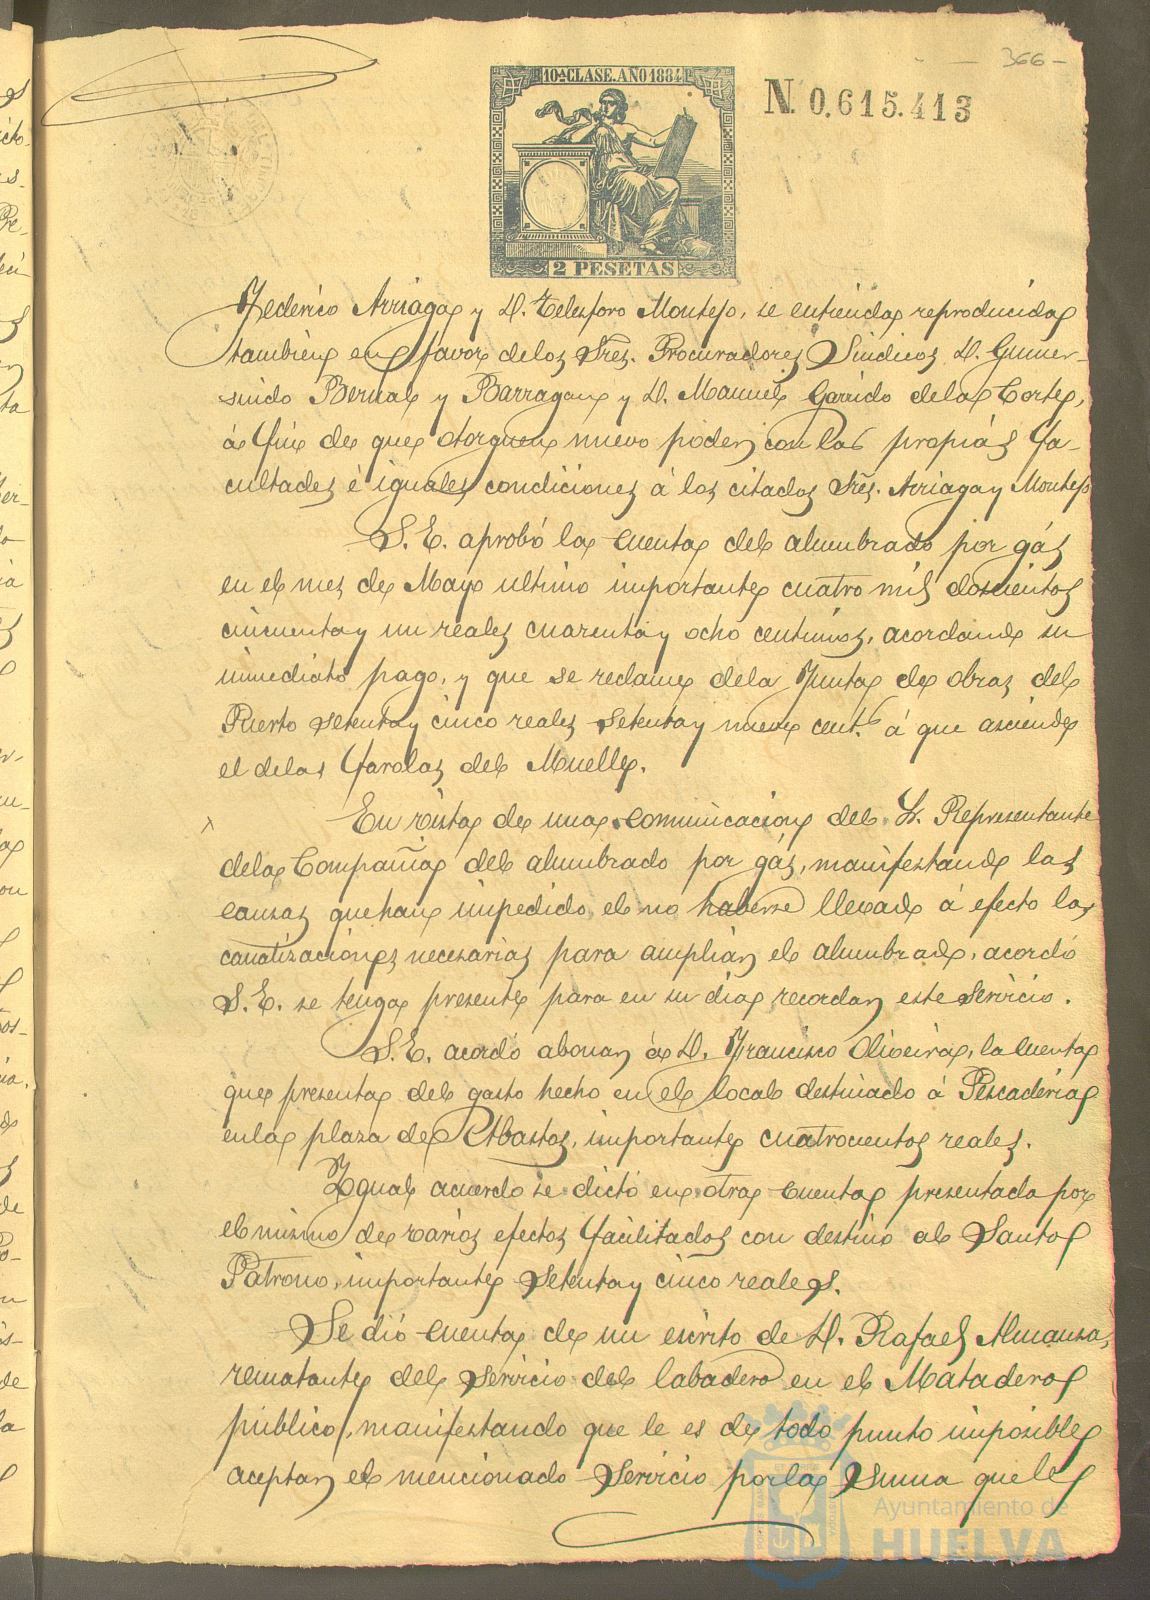 366
10ª CLASE. AÑO 1884
N. 0,615.413
2 PESETAS
Federico Arriaga y D. Telesforo Montejo, se entienda reproducida
tambien en favor de los Sres. Procuradores Sindicos D. Gumer-
sindo Bernal y Barragan y D. Manuel Garrido de la Corte,
á fin de que otorguen nuevo poder con las propias fa-
cultades é iguales condiciones á los citados Sres. Arriaga y Montejo
S. E. aprobó la cuenta del alumbrado por gás
en el mes de Mayo ultimo importante cuatro mil doscientos
cincuenta y un reales cuarenta y ocho centimos, acordando su
inmediato pago, y que se reclame de la Junta de obras del
Puerto setenta y cinco reales setenta y nueve cents. á que asciende
el de las farolas del Muelle.
En vista de una comunicacion del Sr. Representante
de la Compañia del alumbrado por gás, manifestando las
causas que han impedido el no haberse llevado á efecto las
canalizaciones necesarias para ampliar el alumbrado, acordó
S. E. se tenga presente para en su dia recordar este servicio.
S. E. acordó abonar á D. Francisco Oliveira, la cuenta
que presenta del gasto hecho en el local destinado á Pescaderia
en la plaza de Abastos, importante cuatrocientos reales.
Igual acuerdo se dictó en otra cuenta presentada por
el mismo de varios efectos facilitados con destino al Santo
Patrono, importante setenta y cinco reales.
Se dió cuenta de un escrito de D. Rafael Almansa,
rematante del servicio del labadero en el Matadero
público, manifestando que le es de todo punto imposible
aceptar el mencionado servicio por la suma que le
Ayuntamiento de
HUELVA